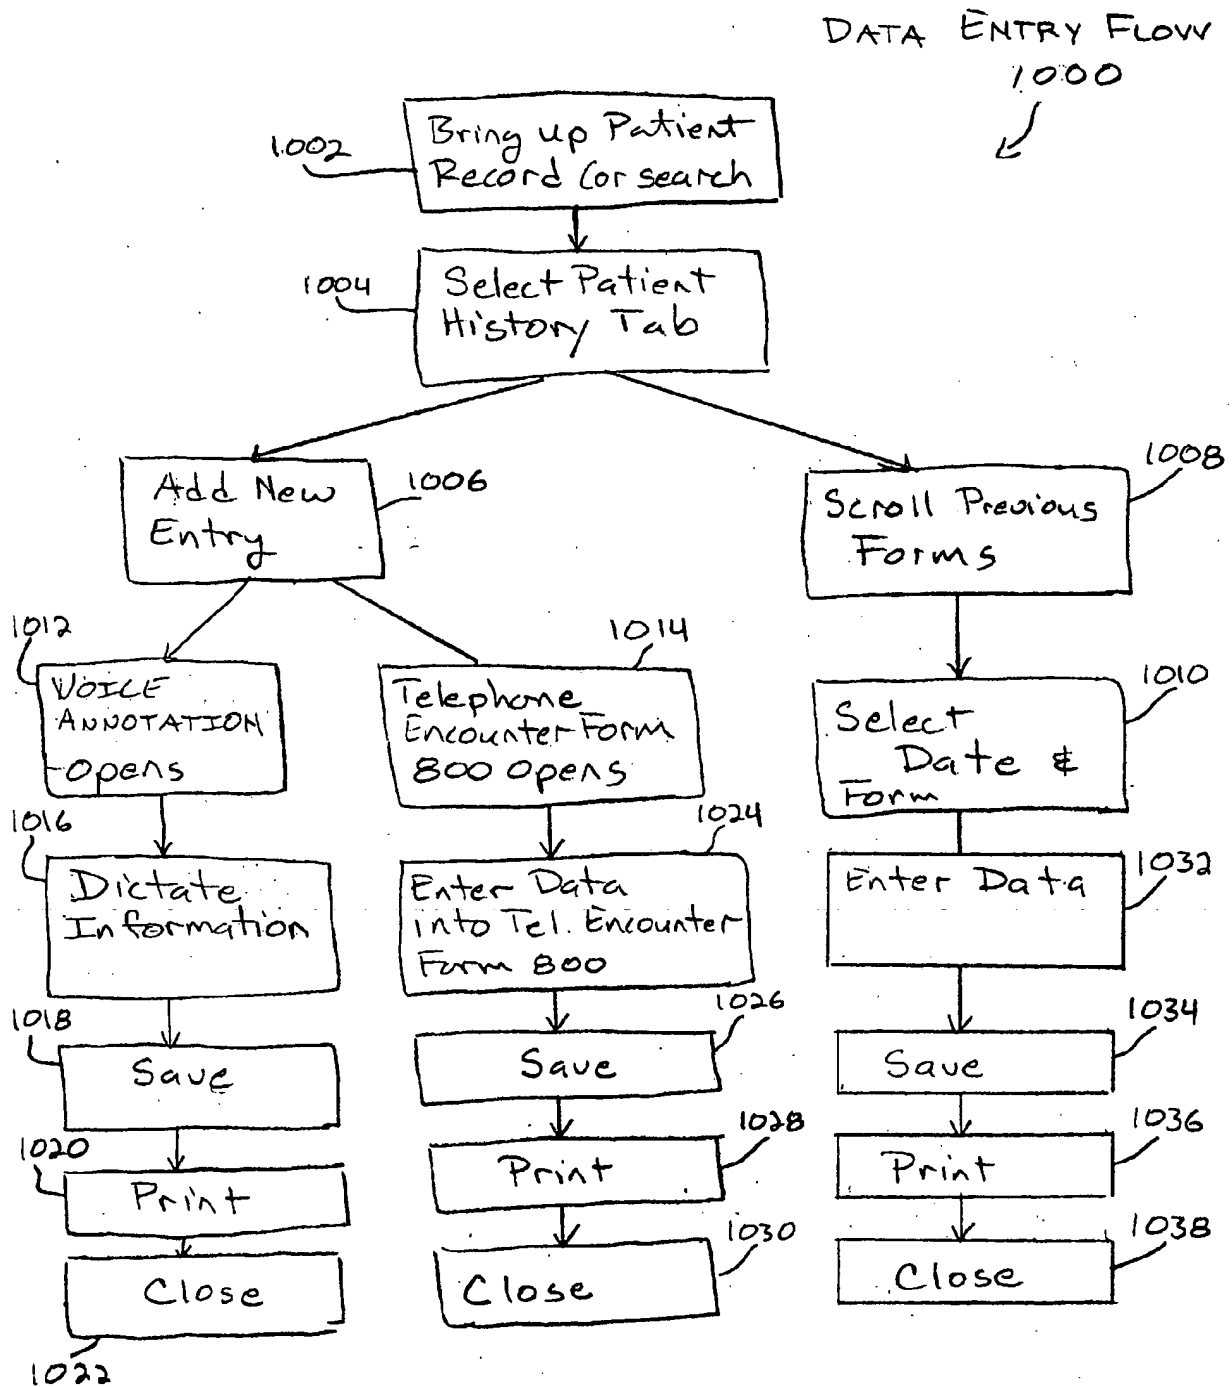 DATA ENTRY FLOW
1000
1002
Bring up Patient
Record (or search
1004
Select Patient
History Tab
1006
Add New
Entry
1008
Scroll Previous
Forms
1012
VOICE
ANNOTATION
Opens
1014
Telephone
Encounter Form
800 Opens
1010
Select
Date &
Form
1016
Dictate
Information
1024
Enter Data
into Tel. Encounter
Form 800
1032
Enter Data
1018
Save
1026
Save
1034
Save
1020
Print
1028
Print
1036
Print
1022
Close
1030
Close
1038
Close